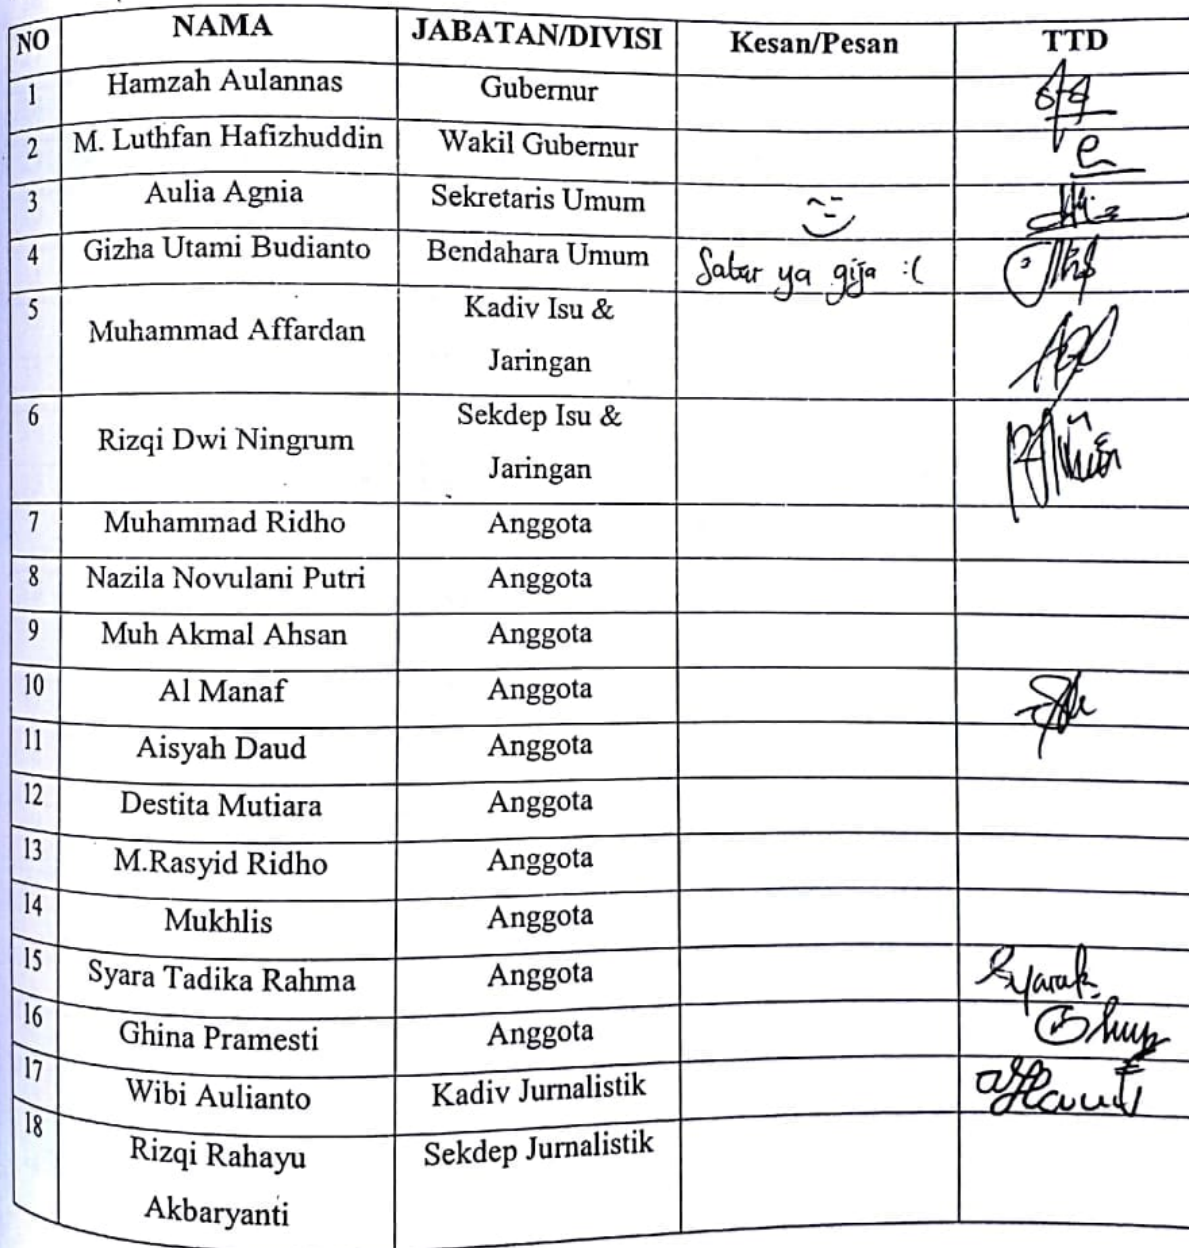 NO NAMA JABATAN/DIVISI Kesan/Pesan TTD
1 Hamzah Aulannas Gubernur
2 M. Luthfan Hafizhuddin Wakil Gubernur
3 Aulia Agnia Sekretaris Umum
4 Gizha Utami Budianto Bendahara Umum Sabar ya gija :(
5 Muhammad Affardan Kadiv Isu &
Jaringan
6 Rizqi Dwi Ningrum Sekdep Isu &
Jaringan
7 Muhammad Ridho Anggota
8 Nazila Novulani Putri Anggota
9 Muh Akmal Ahsan Anggota
10 Al Manaf Anggota
11 Aisyah Daud Anggota
12 Destita Mutiara Anggota
13 M.Rasyid Ridho Anggota
14 Mukhlis Anggota
15 Syara Tadika Rahma Anggota
16 Ghina Pramesti Anggota
17 Wibi Aulianto Kadiv Jurnalistik
18 Rizqi Rahayu Sekdep Jurnalistik
Akbaryanti